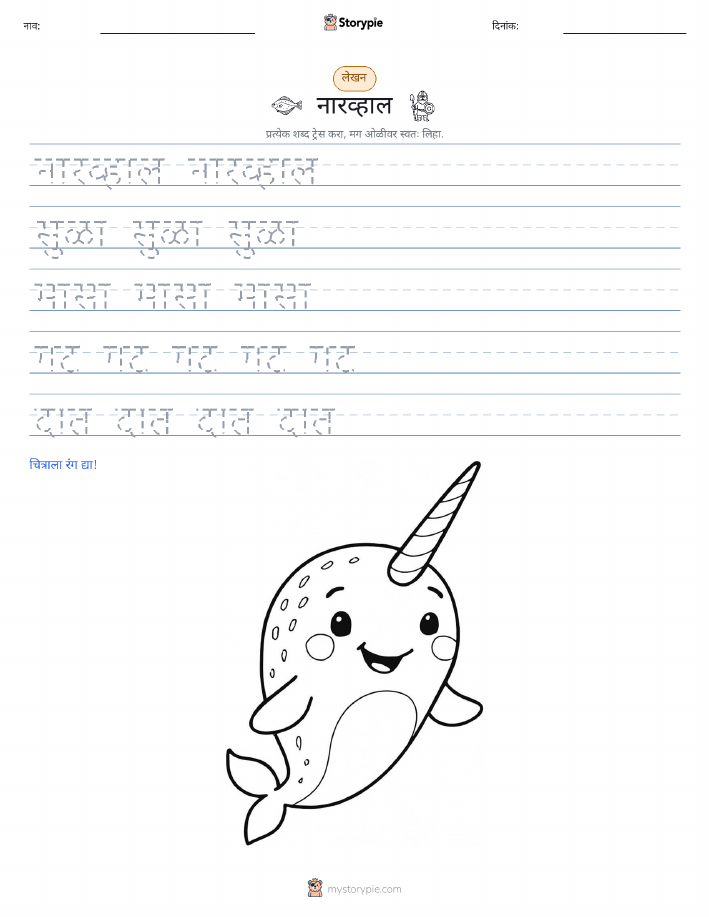 नाव:
Storypie
दिनांक:
लेखन
नारव्हाल
प्रत्येक शब्द ट्रेस करा, मग ओळीवर स्वतः लिहा.
नारव्हाल नारव्हाल
सुळा सुळा सुळा
मासा मासा मासा
गट गट गट गट गट
दात दात दात दात
चित्राला रंग द्या!
mystorypie.com